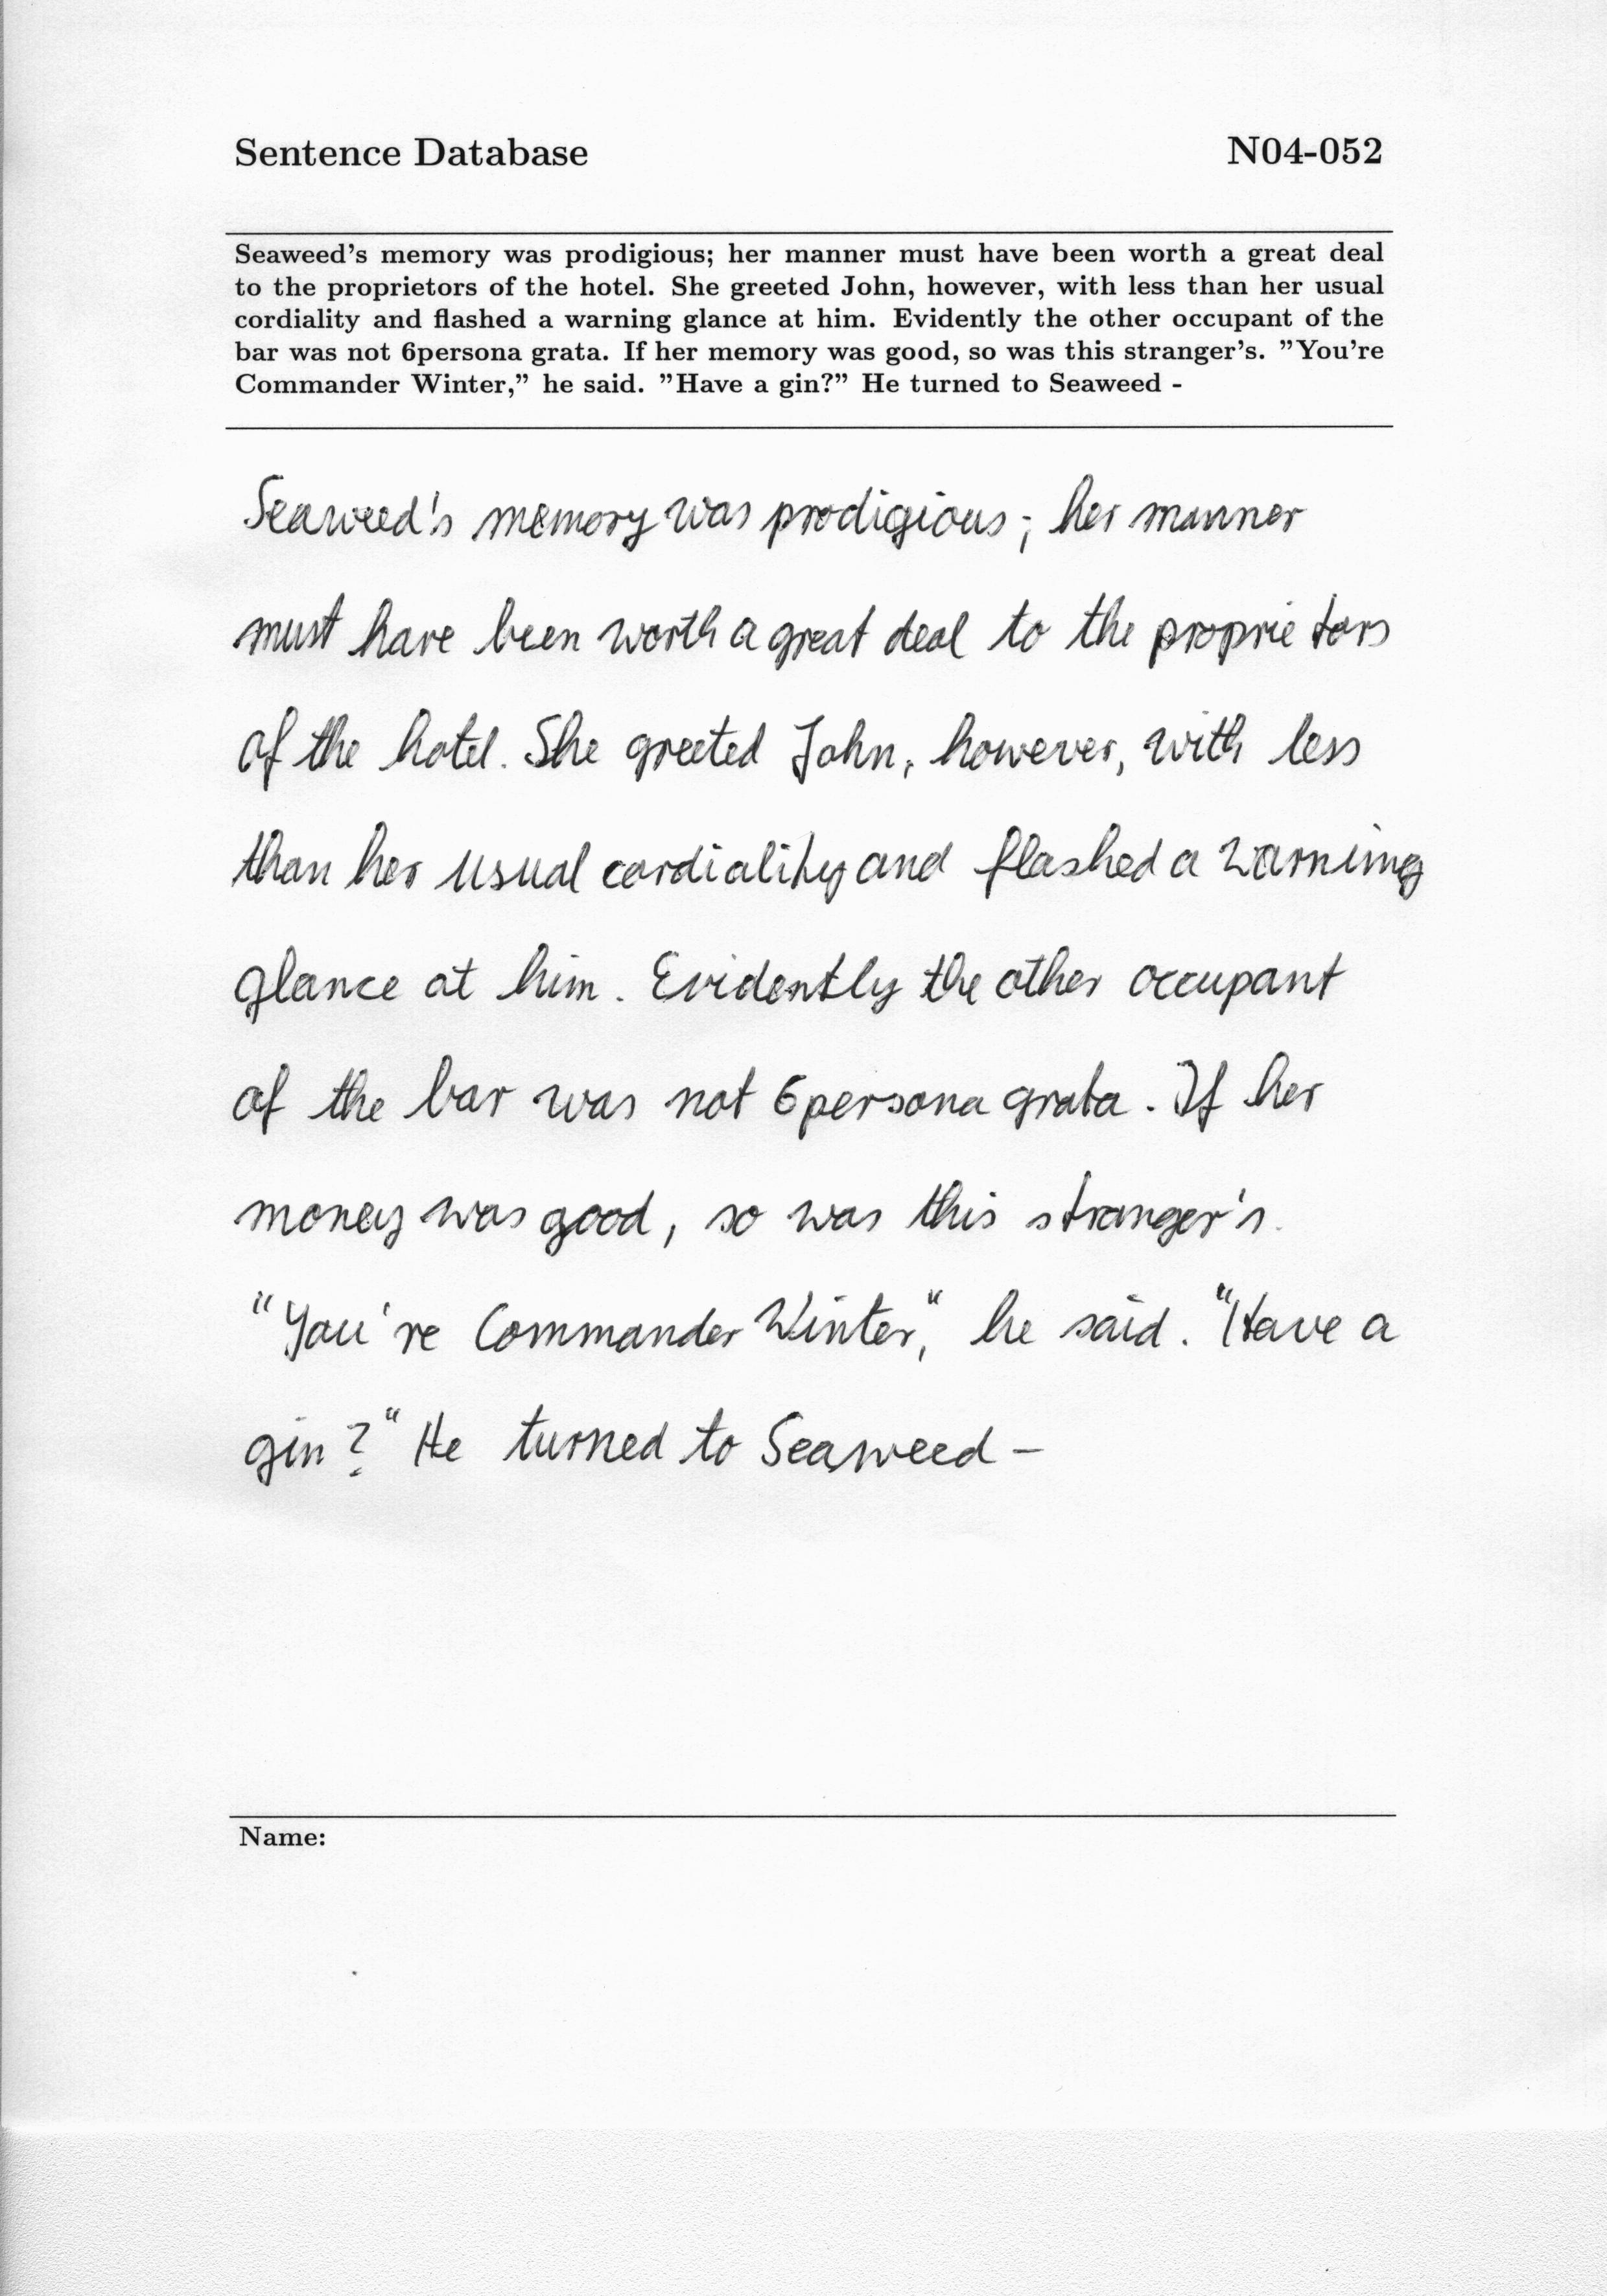 Sentence Database N04-052
Seaweed's memory was prodigious; her manner must have been worth a great deal
to the proprietors of the hotel. She greeted John, however, with less than her usual
cordiality and flashed a warning glance at him. Evidently the other occupant of the
bar was not 6persona grata. If her memory was good, so was this stranger's. ”You're
Commander Winter,” he said. ”Have a gin?” He turned to Seaweed -
Seaweed's memory was prodigious; her manner
must have been worth a great deal to the proprietors
of the hotel. She greeted John, however, with less
than her usual cordiality and flashed a warning
glance at him. Evidently the other occupant
of the bar was not 6persona grata. If her
money was good, so was this stranger's.
"You're Commander Winter," he said. "Have a
gin?" He turned to Seaweed -
Name: